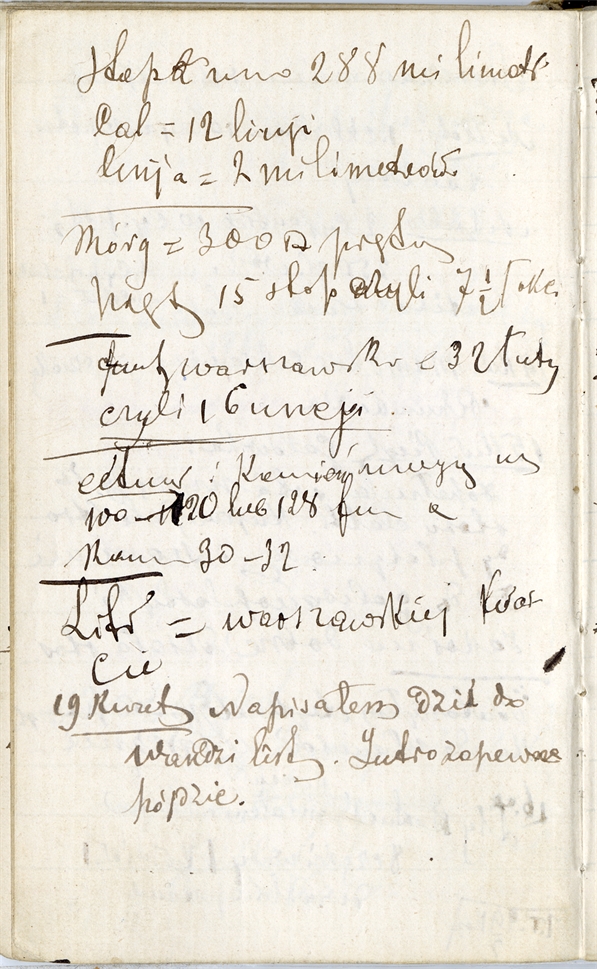 Stopa ma 288 milimetr
Cal = 12 linji
linja = 2 milimetrów
Mórg = 300 □ pręty
pręt 15 stóp czyli 7 1/2 łokci
funt warszawski = 32 łuty
czyli 16 uncyji.
i Kamień ważą
100 – 120 lub 128 fun a
Kam 30 – 32.
Litr = warszawskiej kwar
cie
19 Kwiet Napisałem dziś do
Wandzi list. Jutro zapewne
pójdzie.